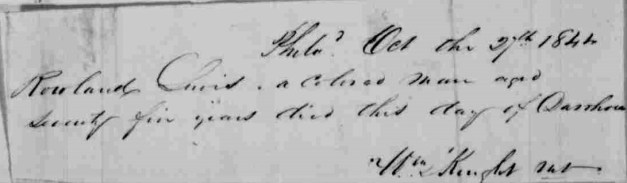 Phila? Oct the 27th 1844
Rowland Davis, a colored man aged
seventy five years died this day of Diarrhoea
Wm Knight MD